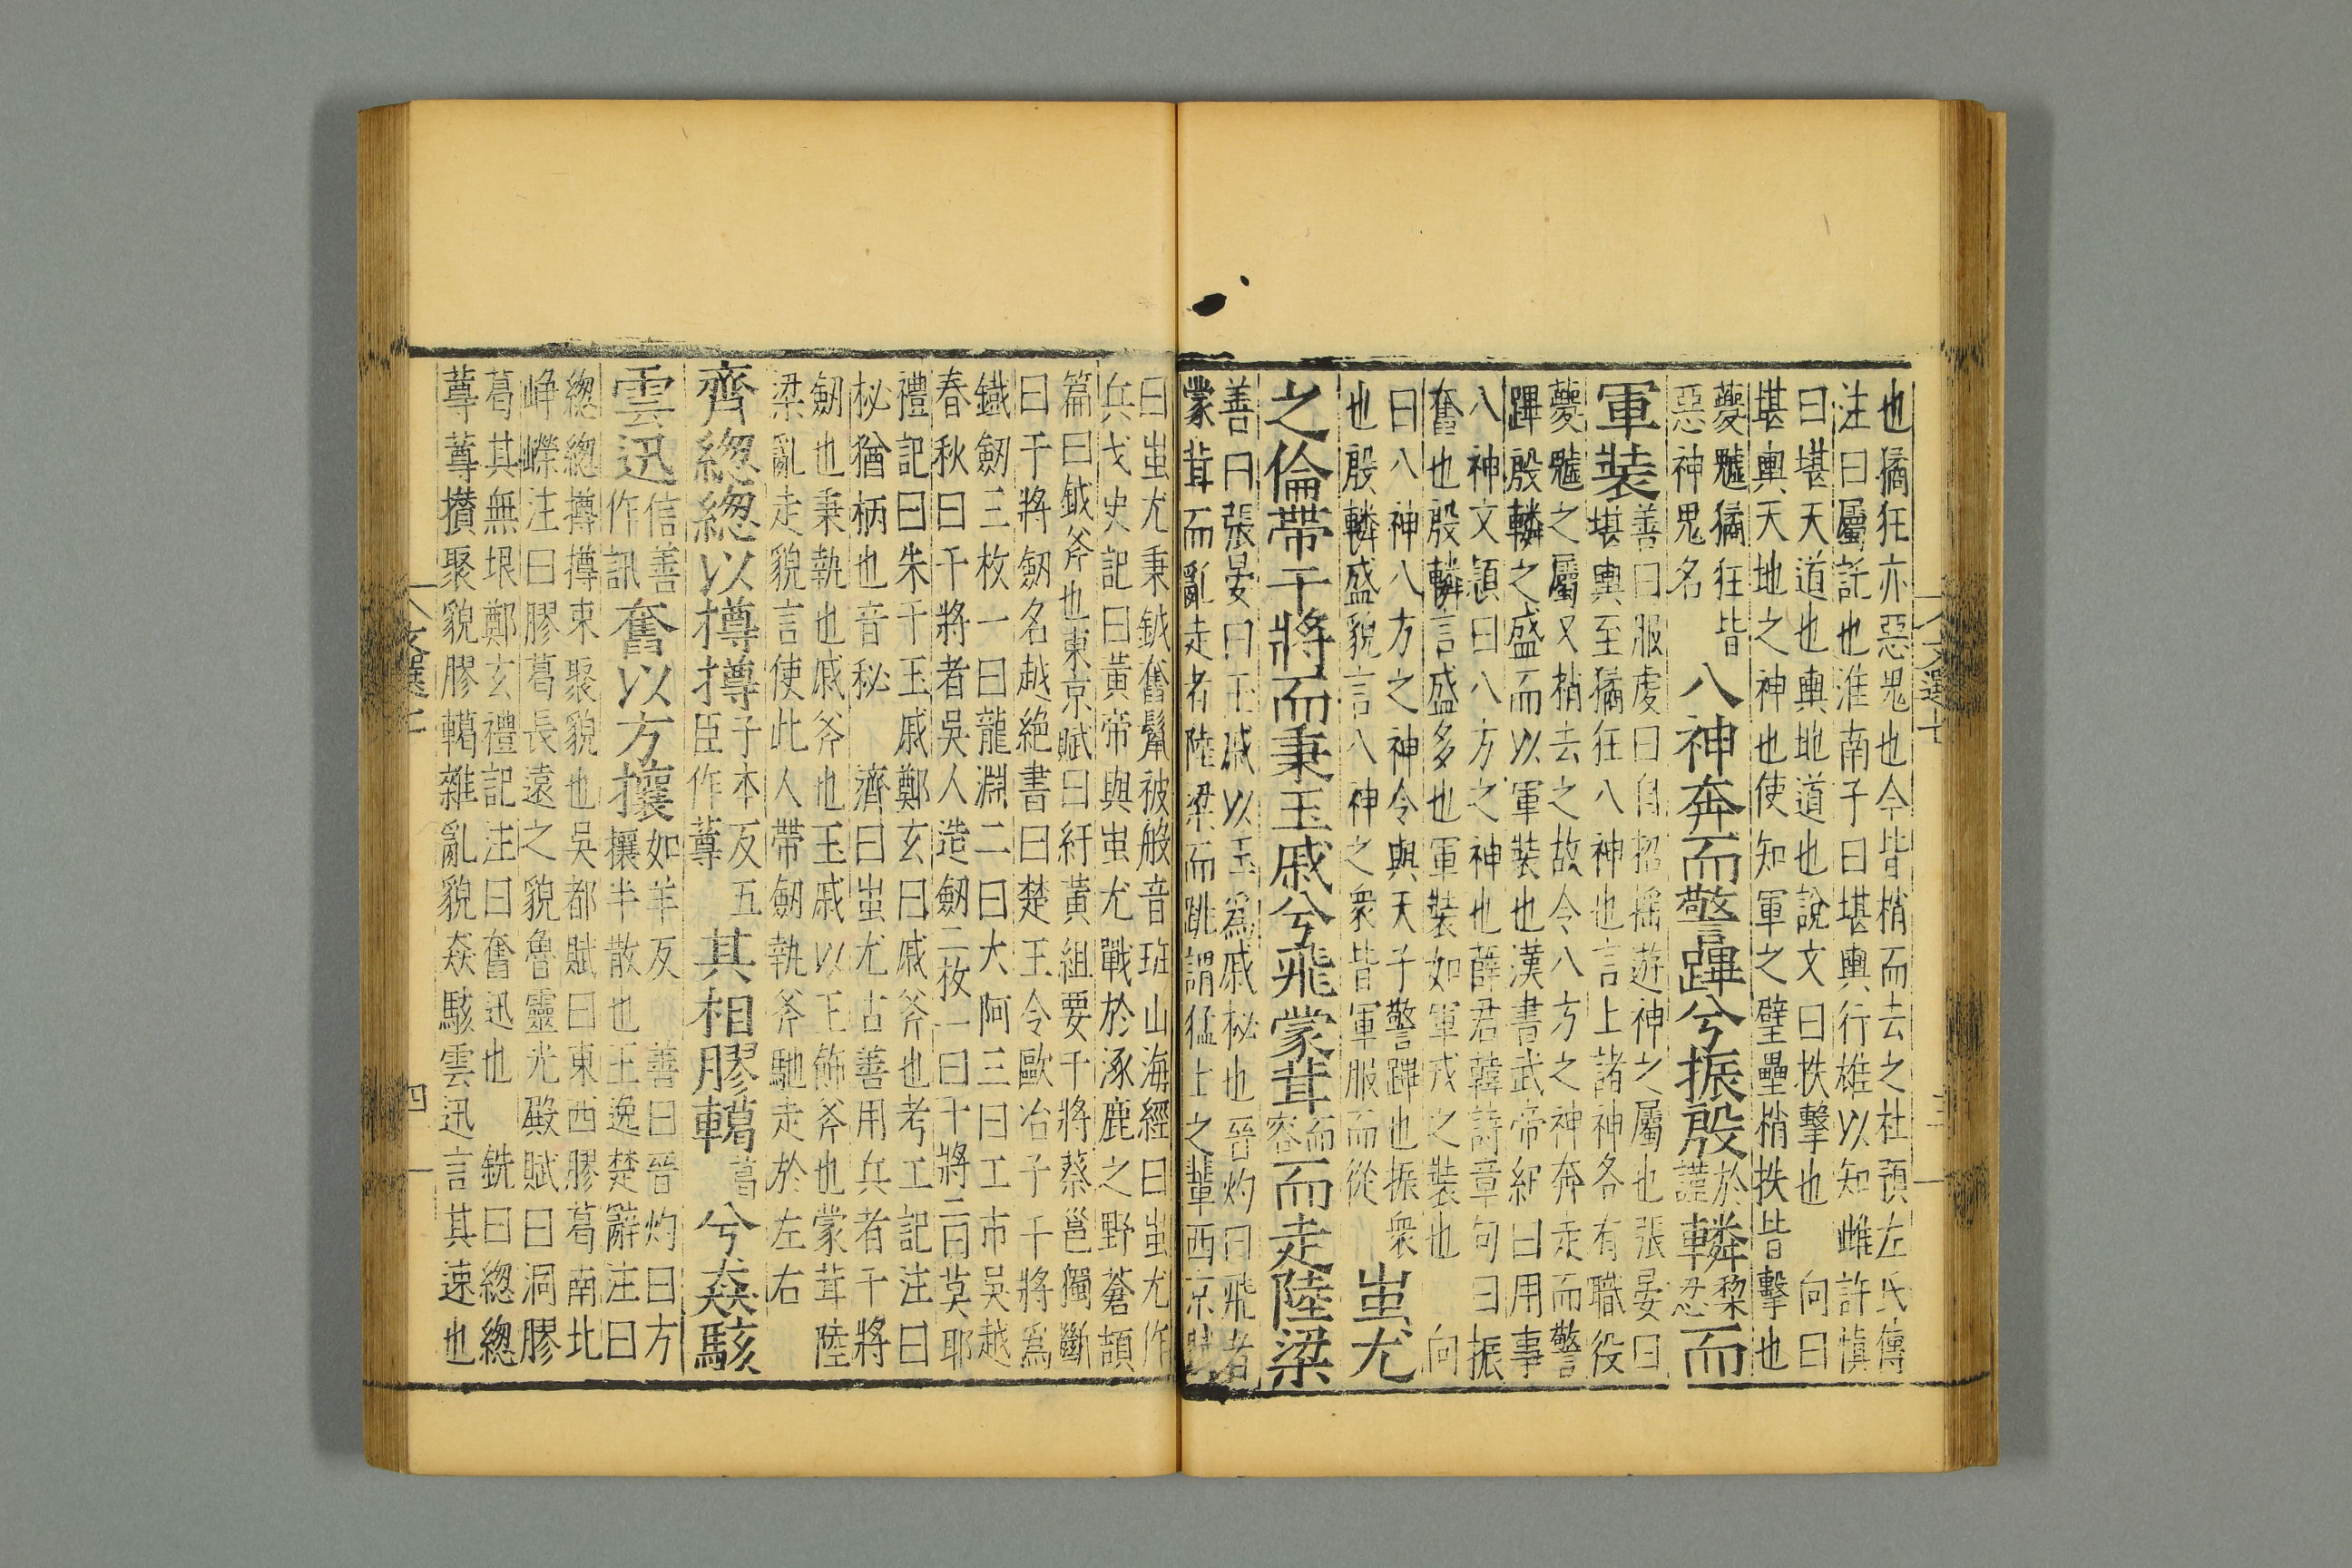 也獝狂亦惡鬼也今皆梢而去之杜預左氏傳
注曰屬託也淮南子曰堪輿行雄以知雌許慎
曰堪天道也輿地道也說文曰抶擊也 向曰
堪輿天地之神也使知軍之壁壘梢抶皆擊也
夔魖獝狂皆
惡神鬼名
八神奔而警蹕兮振殷
於
謹
轔
棃
忍
而
軍裝
善曰服虔曰自招搖遊神之屬也張晏曰
堪輿至獝狂八神也言上諸神各有職役
夔魖之屬又梢去之故令八方之神奔走而警
蹕殷轔之盛而以軍裝也漢書武帝紀曰用事
八神文穎曰八方之神也薛君韓詩章句曰振
奮也殷轔言盛多也軍裝如軍戎之裝也 向
曰八神八方之神令與天子警蹕也振衆
也殷轔盛貌言八神之衆皆軍服而從
蚩尤
之倫帶干將而秉玉戚兮飛蒙茸
而
容
而走陸梁
善曰張晏曰玉戚以玉爲戚柲也晉灼曰飛者
蒙茸而亂走者陸梁而跳謂猛士之輩西京賦
文選七
三
曰蚩尤秉鉞奮鬣被般音班山海經曰蚩尤作
兵戈史記曰黃帝與蚩尤戰於涿鹿之野蒼頡
篇曰鉞斧也東京賦曰紆黃組要干將蔡邕獨斷
曰干將劒名越絶書曰楚王令歐冶子干將爲
鐵劒三枚一曰龍淵二曰大阿三曰工市吳越
春秋曰干將者吳人造劒二枚一曰干將二曰莫耶
禮記曰朱干玉戚鄭玄曰戚斧也考工記注曰
柲猶柄也音秘 濟曰蚩尤古善用兵者干將
劒也秉執也戚斧也玉戚以玉飾斧也蒙茸陸
梁亂走貌言使此人帶劒執斧馳走於左右
齊緫緫以撙撙
子本反五
臣作蓴
其相膠轕
葛
兮猋駭
雲迅
信善
作訊
奮以方攘
如羊反 善曰晉灼曰方
攘半散也王逸楚辭注曰
緫緫撙撙束聚貌也吳都賦曰東西膠葛南北
崢嶸注曰膠葛長遠之貌魯靈光殿賦曰洞膠
葛其無垠鄭玄禮記注曰奮迅也 銑曰緫緫
蓴蓴攢聚貌膠轕雜亂貌猋駭雲迅言其速也
文選七
四